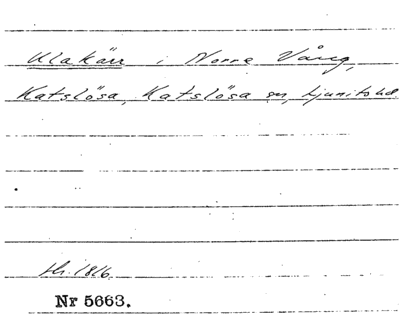 Ulakärr i Norre Vång,
Katslösa, Katslösa sn, Ljunits hd.
Hr. 1816.
Nr 5663.